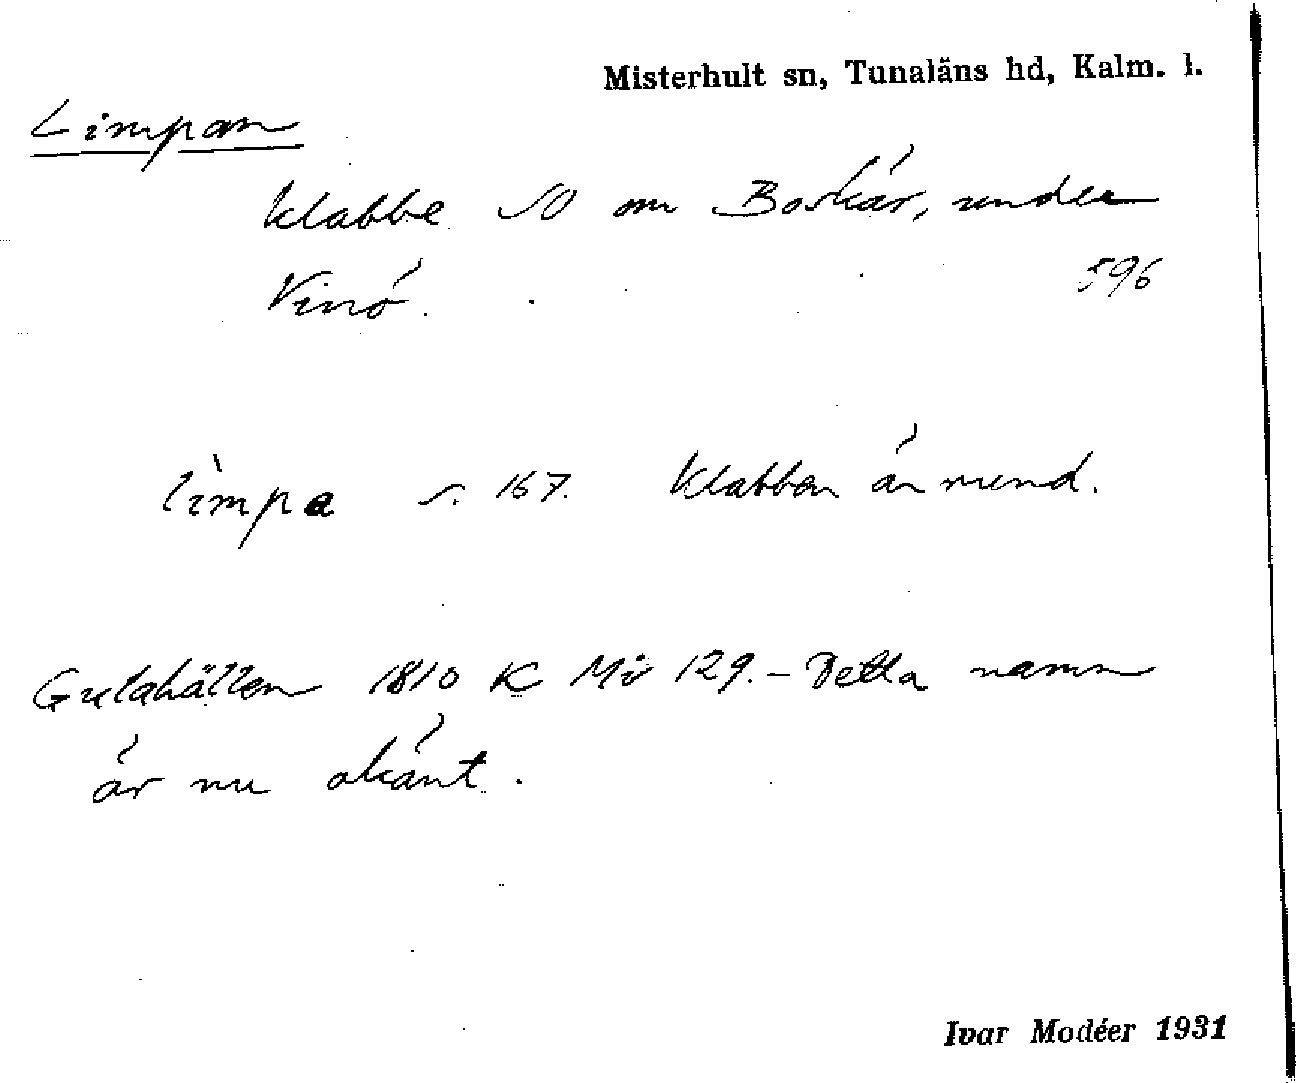 Misterhult sn, Tunaläns hd, Kalm. l.
Limpan
klabbe SO om Boskär, under
Vinö.
596
lìmpa s. 167. Klabben är rund.
Gulahällen 1810 K Mi 129. – Detta namn
är nu okänt.
Ivar Modéer 1931